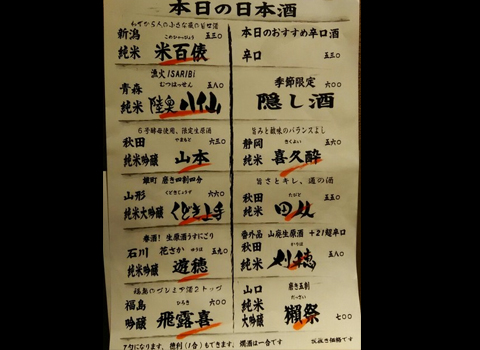 本日の日本酒
新潟 五三〇
純米 米百俵
漁火ISARIBI
青森 むつはっせん 五八〇
純米 陸奥八仙
6号酵母使用、限定生原酒
秋田 やまもと 六三〇
純米吟醸 山本
磨き四割四分
山形 くどきじょうず 六六〇
純米大吟醸 くどき上手
生原酒うすにごり
石川 花さか ゆうほ 五九〇
純米吟醸 遊穂
福島 ひろき 六〇〇
吟醸 飛露喜
本日のおすすめ辛口酒
辛口 五三〇
季節限定 六〇〇
隠し酒
旨みと酸味のバランスよし
静岡 きくよい 五六〇
純米 喜久酔
旨さとキレ、通の酒
秋田 五五〇
純米 田从
番外品 山廃生原酒 +21超辛口
秋田 かりほ 五八〇
純米 刈穂
山口 磨き五割
純米 だっさい
大吟醸 獺祭 七〇〇
7勺になります。徳利(1合)もできます。燗酒は一合です
税抜き価格です